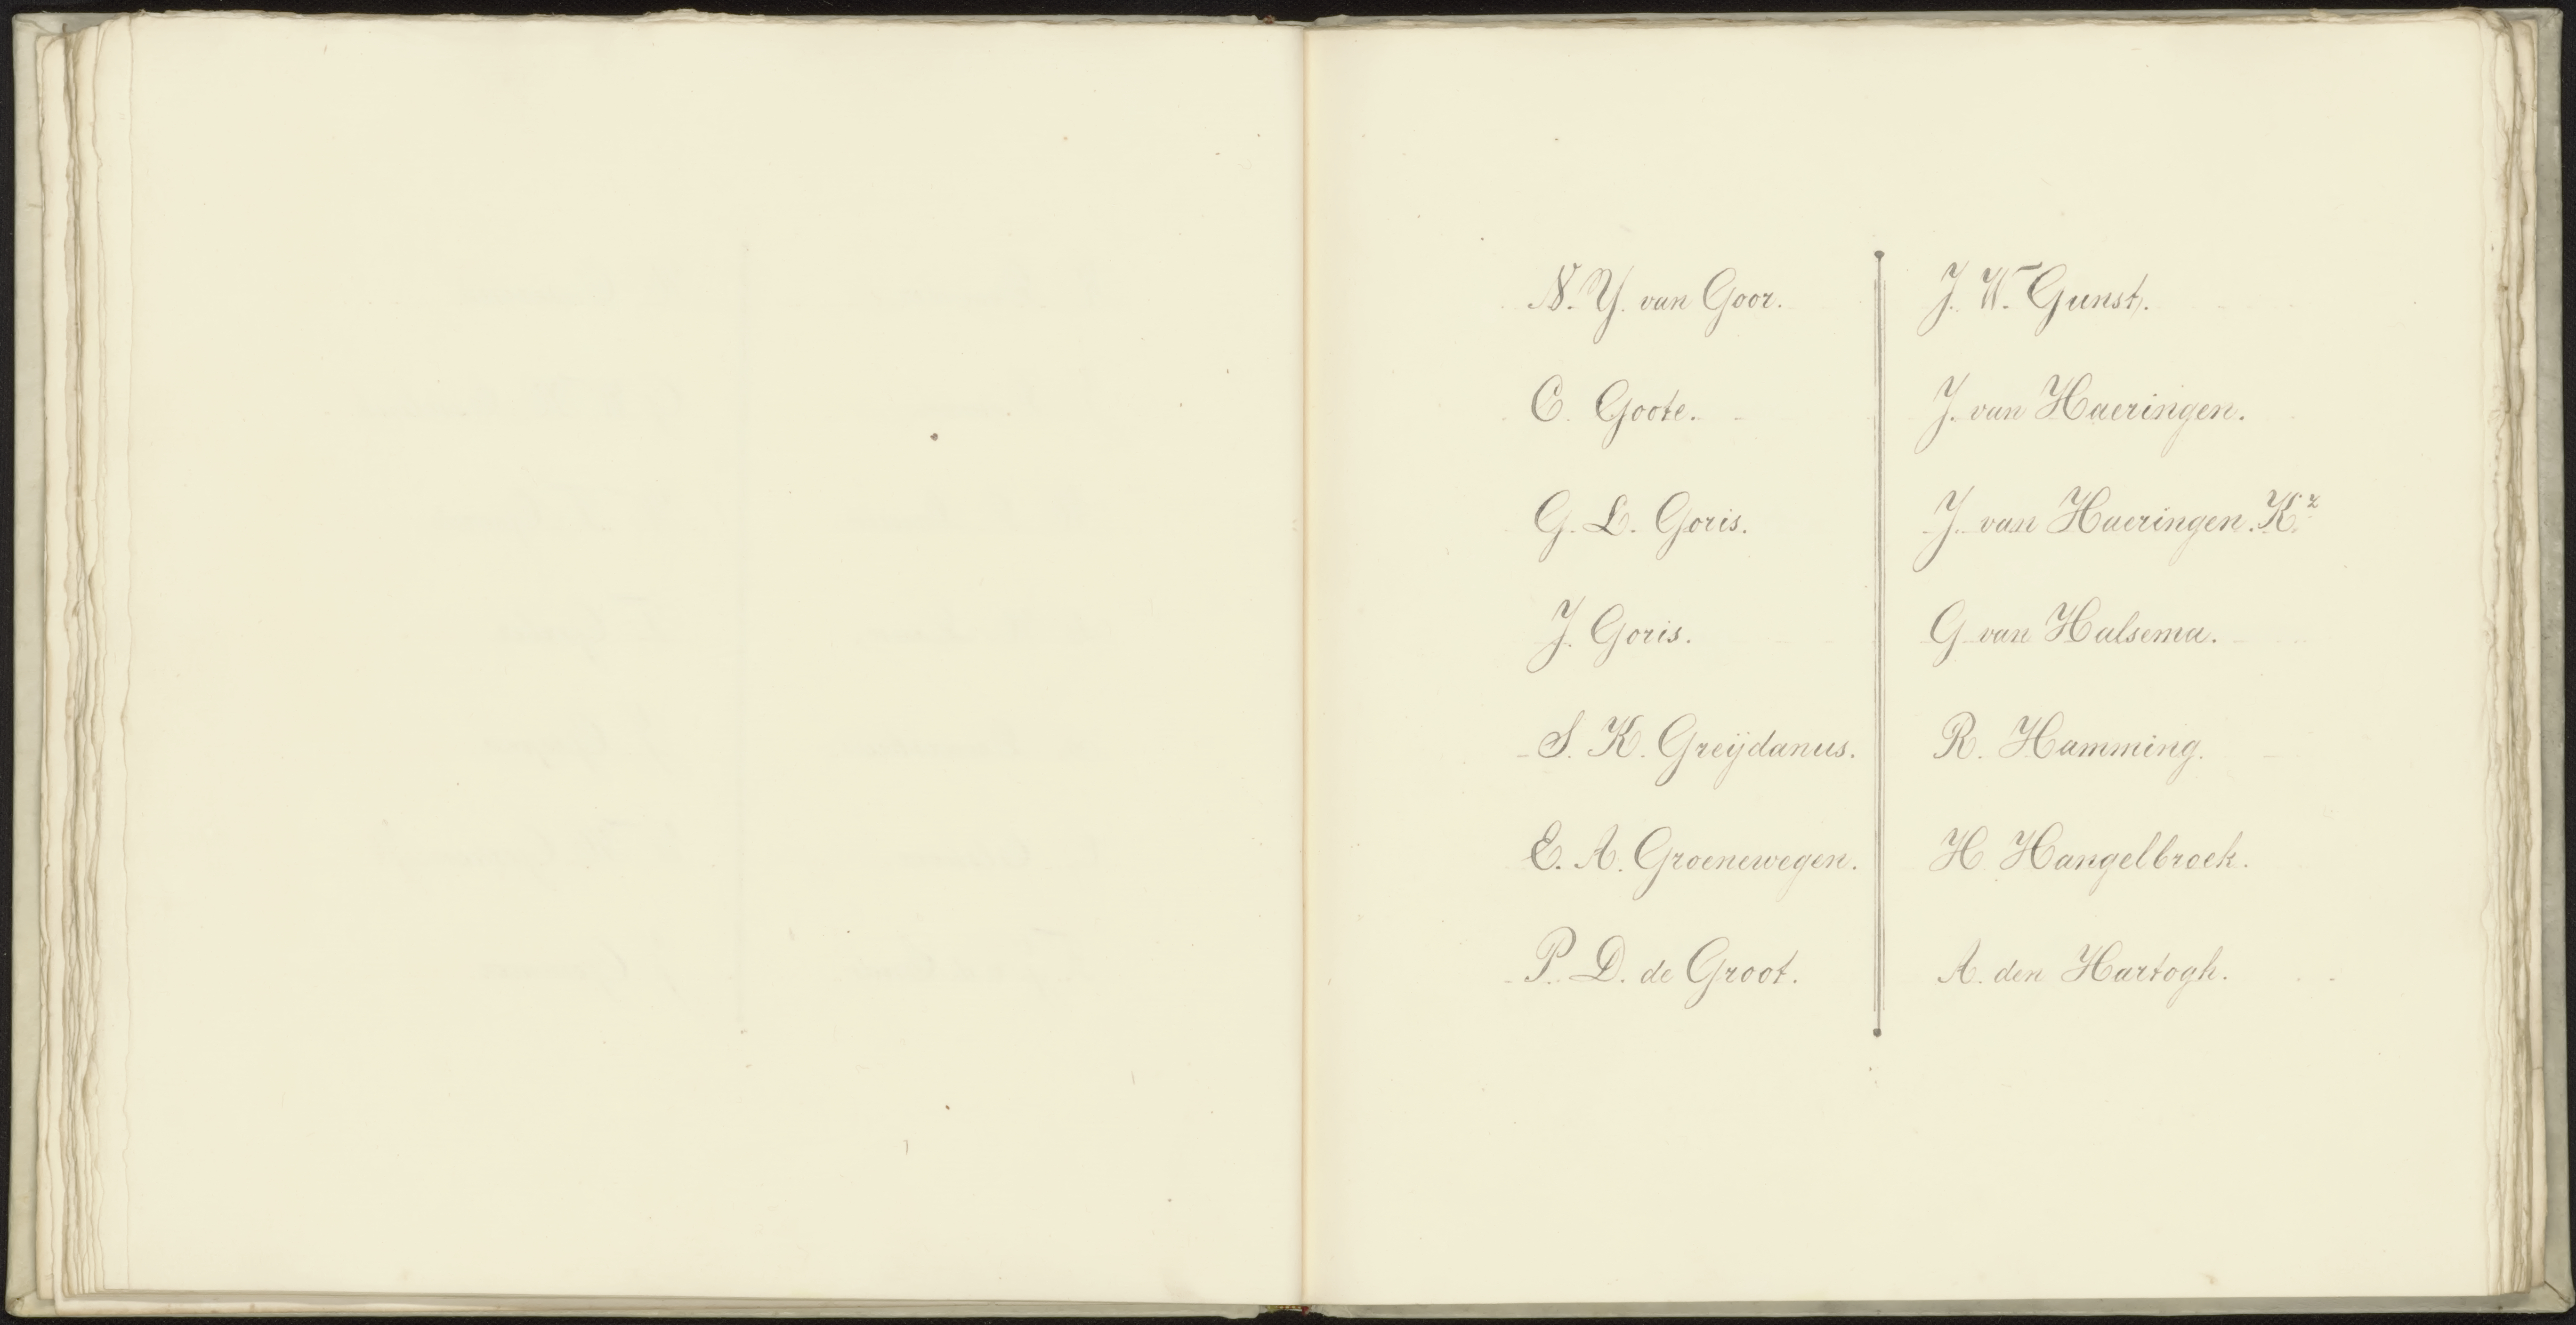 N. Y. van Goor.
C. Goote.
G. L. Goris.
J. Goris.
S. K. Greijdanus.
E. A. Groenewegen.
P. D. de Groot.
J. W. Gunst.
J. van Haeringen.
J. van Haeringen. Kz
G van Halsema.
R. Hamming.
H. Hangelbroek.
A. den Hartogh.